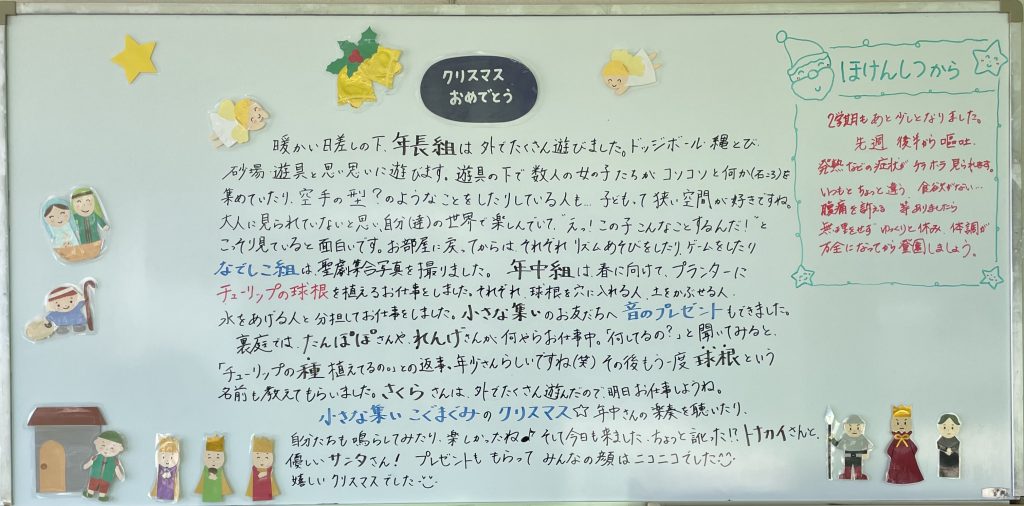 クリスマス
おめでとう
暖かい日差しの下、年長組は外でたくさん遊びました。ドッジボール・縄とび
砂場・遊具と思い思いに遊びます。遊具の下で数人の女の子たちがコソコソと何か(石ころ)を
集めていたり、空手の型?のようなことをしたりしている人も…子どもって狭い空間が好きですね。
大人に見られていないと思い、自分(達)の世界で楽しんでいて"えっ!この子こんなことするんだ!"と
こっそり見ていると面白いです。お部屋に戻ってからは、それぞれリズムあそびをしたり、ゲームをしたり
なでしこ組は聖劇集合写真を撮りました。 年中組は、春に向けて、プランターに
チューリップの球根を植えるお仕事をしました。それぞれ、球根を穴に入れる人、土をかぶせる人、
水をあげる人と分担してお仕事をしました。小さな集いのお友だちへ音のプレゼントもできました。
裏庭では、たんぽぽさんや、れんげさんが、何やらお仕事中。「何してるの?」と聞いてみると、
「チューリップの種植えてるの。」との返事。年少さんらしいですね(笑) その後もう一度球根という
名前も教えてもらいました。さくらさんは、外でたくさん遊んだので、明日お仕事しようね。
小さな集いこぐまぐみのクリスマス☆年中さんの奏楽を聴いたり、
自分たちも鳴らしてみたり、楽しかったね♪そして今日も来ました、ちょっと訛った!?トナカイさんと、
優しいサンタさん! プレゼントももらってみんなの顔はニコニコでした
嬉しいクリスマスでした
ほけんしつから
2学期もあと少しとなりました。
先週後半から嘔吐、
発熱などの症状がチラホラ見られます。
いつもとちょっと違う 食欲がない…
腹痛を訴える 等ありましたら
無理をせずゆっくりと休み、体調が
万全になってから登園しましょう。